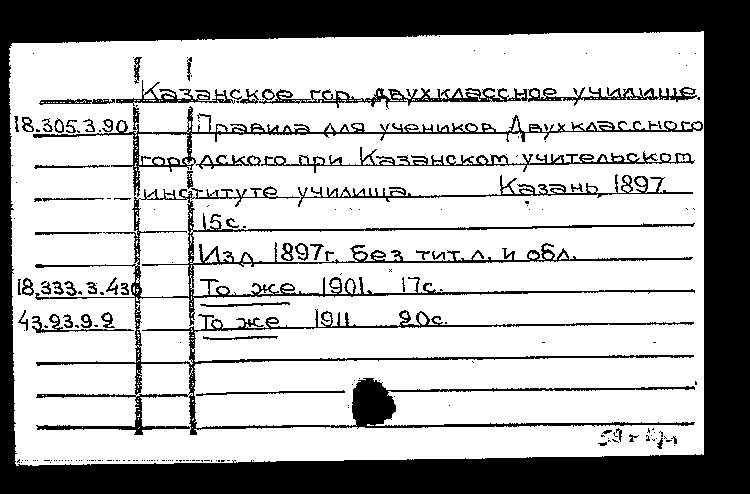 Казанское гор. двухклассное училище.
18.305.3.90 Правила для учеников Двухклассного
городского при Казанском учительском
институте училища. Казань, 1897.
15с.
Изд. 1897г. без тит. л. и обл.
18.333.3.430 То же. 1901. 17с.
43.23.9.2 То же. 1911. 20с.